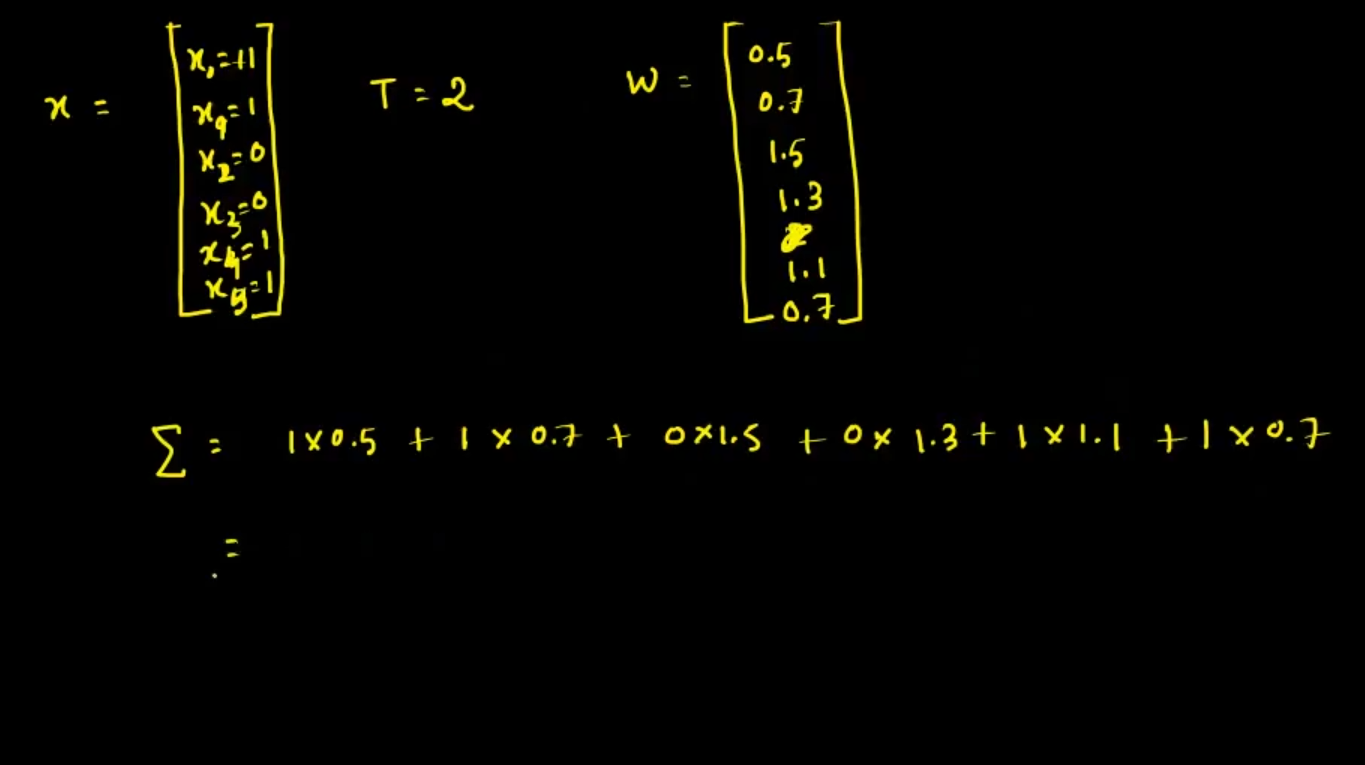 x = [ x₁=+1
x₉=1
x₂=0
x₃=0
x₄=1
x₅=1 ]
T = 2
W = [ 0.5
0.7
1.5
1.3
1.1
0.7 ]
Σ = 1×0.5 + 1×0.7 + 0×1.5 + 0×1.3 + 1×1.1 + 1×0.7
=